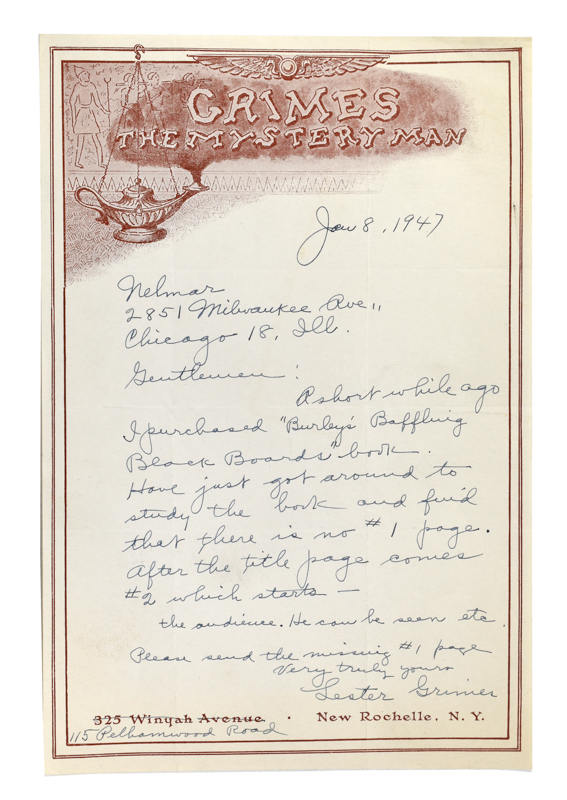 GRIMES
THE MYSTERY MAN
Jan 8, 1947
Nelmar
2851 Milwaukee Ave.,
Chicago 18, Ill.
Gentlemen:
A short while ago
I purchased "Burley's Baffling
Black Boards" book.
Have just got around to
study the book and find
that there is no #1 page.
After the title page comes
#2 which starts —
the audience. He can be seen etc.
Please send the missing #1 page
Very truly yours
Lester Grimes
325 Winyah Avenue. · New Rochelle, N. Y.
115 Pelhamwood Road